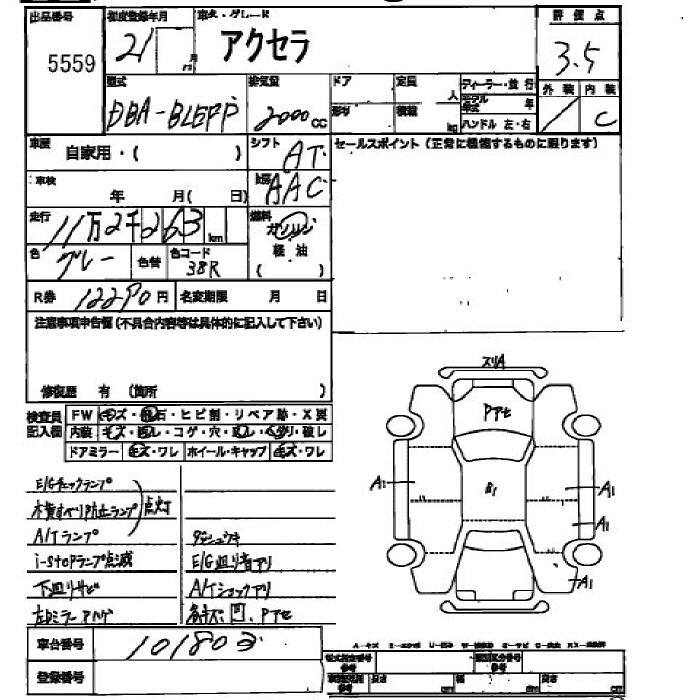 出品番号 初度登録年月 車名・グレード 評価点
5559 21 月 アクセラ 3.5
型式 排気量 ドア 定員 人 ディーラー・並行 外装 内装
DBA-BLEFP 2000cc 形状 積載 kg モデル年式 年 / C
ハンドル 左・右
車歴 自家用・( ) シフト AT セールスポイント(正常に機能するものに限ります)
車検 年 月( 日) AAC
走行 11万2千263 km 燃料 ガソリン
色 グレー 色替 色コード 38R 軽油
( )
R券 12290円 名変期限 月 日
注意事項申告欄(不具合内容等は具体的に記入して下さい)
修復歴 有 (箇所 )
検査員記入欄 FW キズ・飛石・ヒビ割・リペア跡・X要
内装 キズ・コゲ・穴・破レ
ドアミラー キズ・ワレ ホイール・キャップ キズ・ワレ
ズリA
Pアセ
A1
B1
A1
A1
A1
E/Gチェックランプ
横すべり防止ランプ 点灯
A/Tランプ ダシュウキ
i-stopランプ点滅 E/G廻り音アリ
下廻りサビ A/Tショックアリ
左Dミラー 各キズ、凹、Pアセ
車台番号 101802
登録番号
型式指定番号 参考 類別区分番号 参考
参考 長さ cm 幅 cm 高さ cm